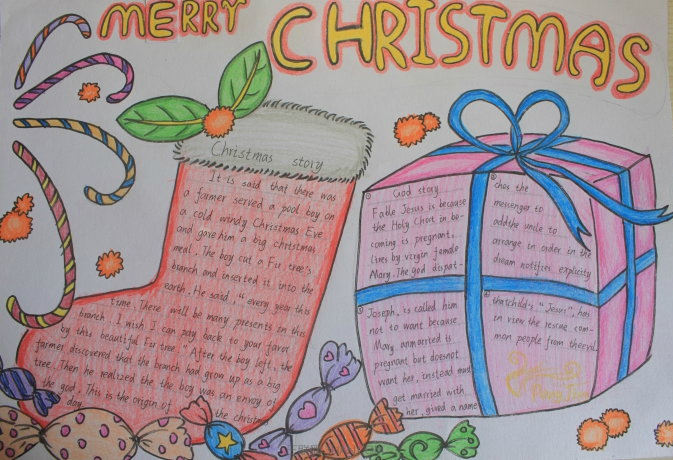 MERRY CHRISTMAS
Christmas story
It is said that there was
a farmer served a pool boy on
a cold windy Christmas Eve
and gave him a big christmas
meal. The boy cut a Fir tree's
branch and inserted it into the
earth. He said, "every year this
time. There will be many presents in this
branch. I wish I can pay back to your favor
by this beautiful Fir tree." After the boy left, the
farmer discovered that the branch had grow up as a big
tree. Then he realized the the boy was an envoy of
the god. This is the origin of the christmas
day.
① God story
Fable Jesus is because
the Holy Chort in be-
coming is pregnant.
lives by virgin female
Mary. The god dispat-
② ches the
messenger to
addthe unile to
arrange in order in the
dream notifies explicity
③ Joseph, is called him
not to want because
Mary unmarried is
pregnant but doesnot
want her, instead must
get married with
her, gived a name
④ thatchild's "Jesus", has
in view the rescue com-
mon people from theevil.